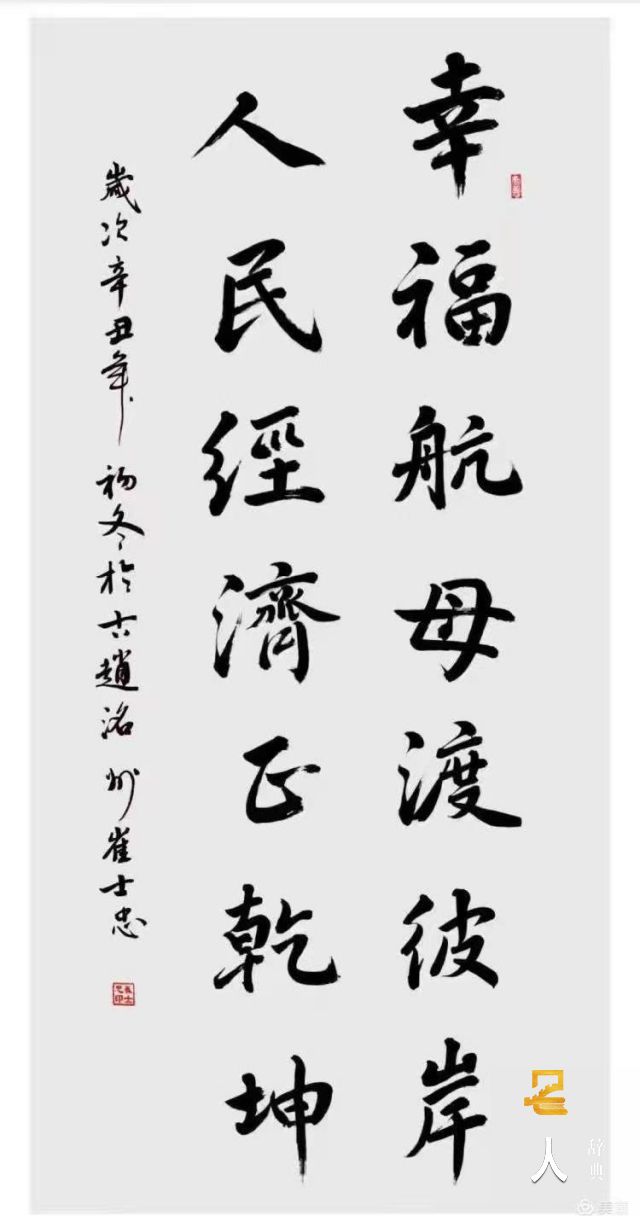 幸福航母渡彼岸
人民經濟正乾坤
歲次辛丑年初冬於古趙洺州崔士忠
崔士忠印
名人辞典